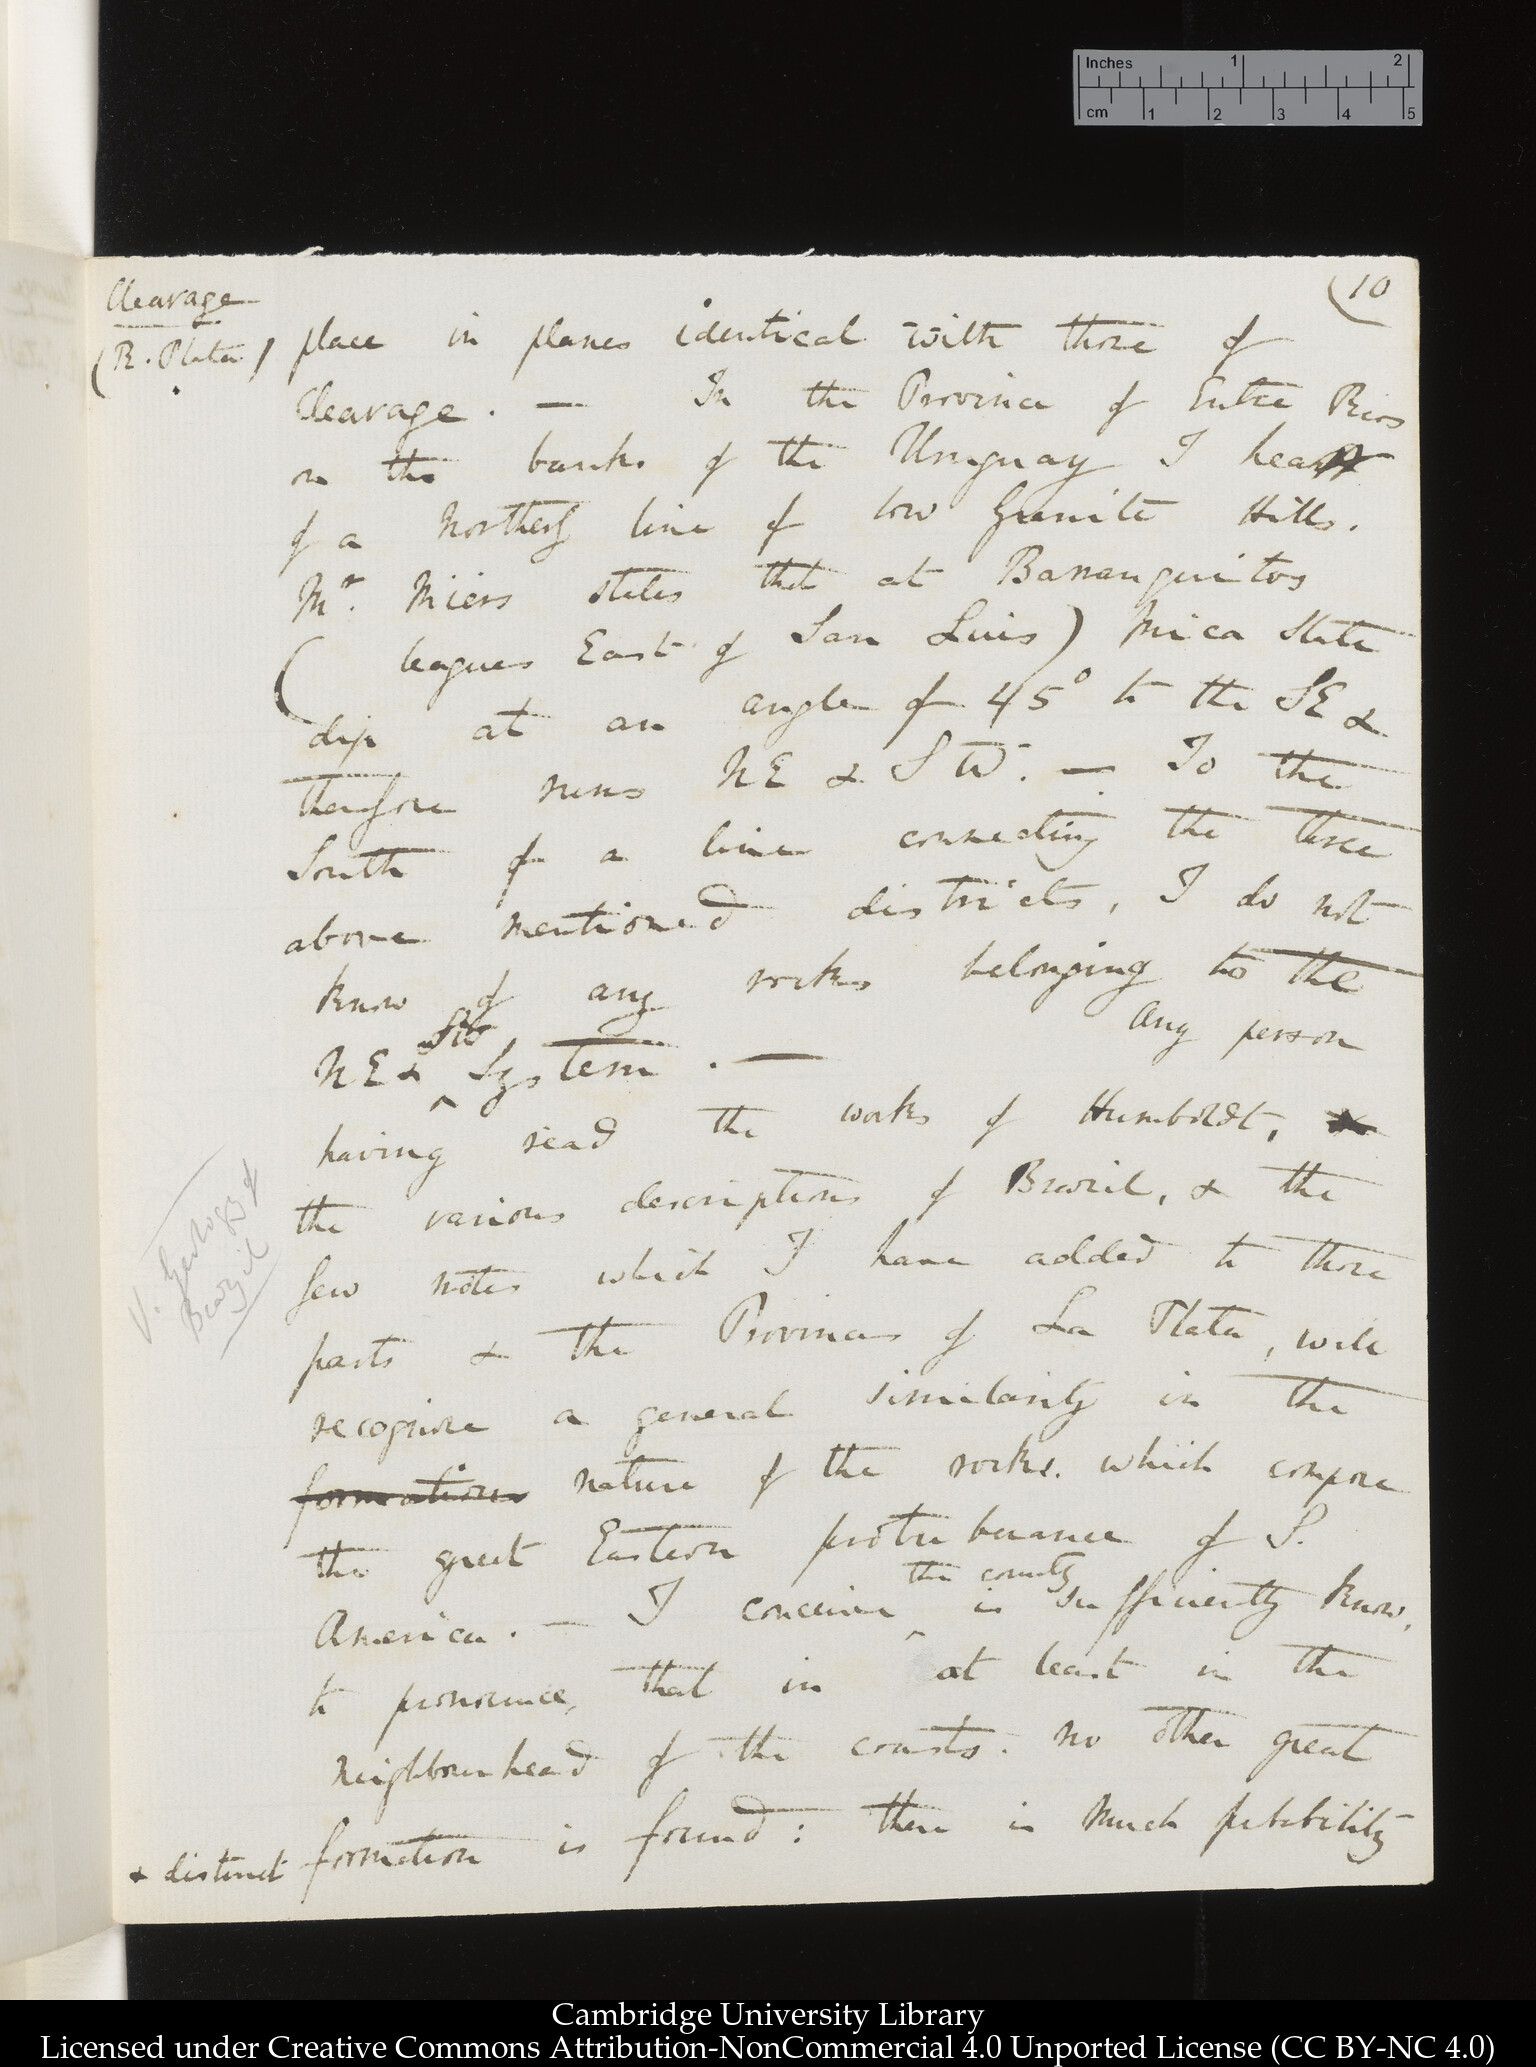 Inches 1 2
cm 1 2 3 4 5
(10
Cleavage
(R. Plata)
place in planes identical with those of
Cleavage. — In the Province of Entre Rios
on the banks of the Uruguay I hear
of a Northerly line of low Granite Hills.
Mr. Miers states that at Barranquitos
( leagues East of San Luis) Mica Slate
dip at an angle of 45° to the SE &
therefore runs NE & SW. — To the
South of a line connecting the three
above mentioned districts, I do not
know of any rocks belonging to the
NE & SW System. — Any person
having read the works of Humboldt,
the various descriptions of Brazil, & the
few notes which I have added to those
V. Geology of
Brazil
parts & the Provinces of La Plata, will
recognise a general similarity in the
formations nature of the rocks. which compose
the great Eastern protuberance of S.
America. — I conceive the country is sufficiently know,
to pronounce, that in at least in the
neighbourhead of the coasts. no other great
& distinct formation is found: there is much probability
Cambridge University Library
Licensed under Creative Commons Attribution-NonCommercial 4.0 Unported License (CC BY-NC 4.0)